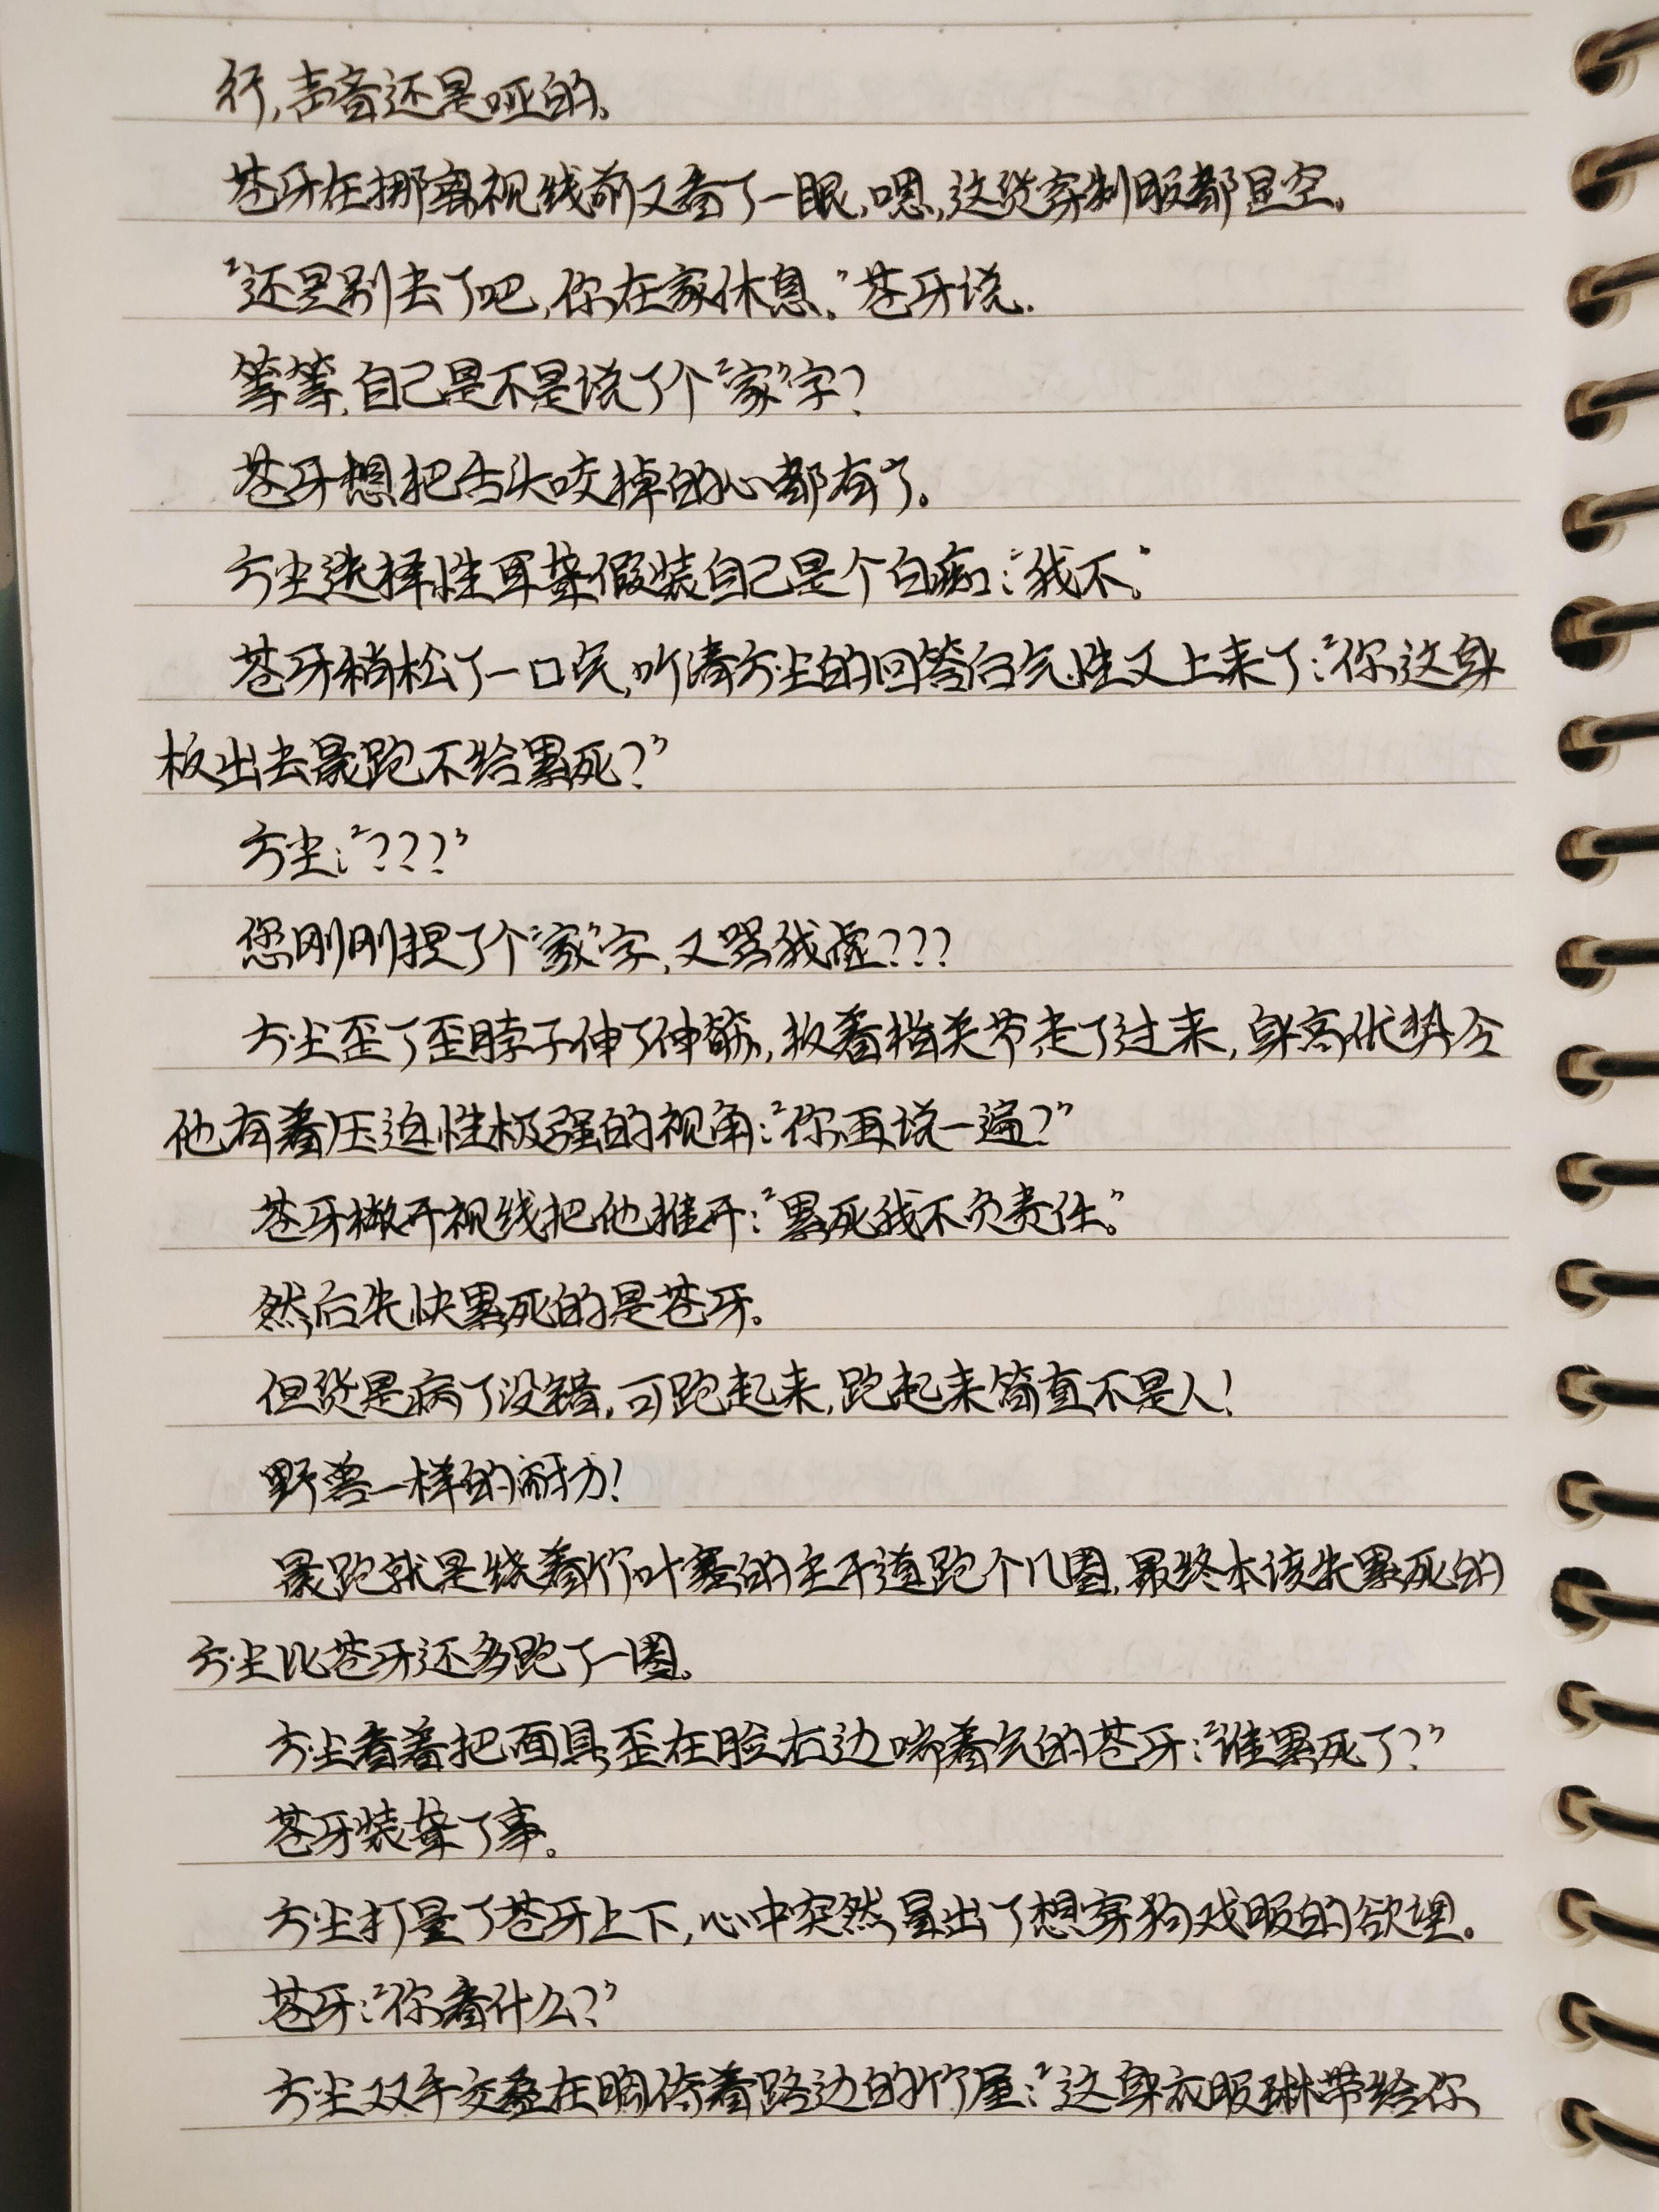 行,声音还是哑的。
苍牙在挪离视线前又看了一眼,嗯,这货穿制服都显空。
“还是别去了吧,你在家休息。”苍牙说.
等等,自己是不是说了个“家”字?
苍牙想把舌头咬掉的心都有了。
方尘选择性耳聋假装自己是个白痴:“我不。”
苍牙稍松了一口气,听清方尘的回答后气性又上来了:“你这身
板出去晨跑不给累死?”
方尘:“???”
您刚刚提了个“家”字,又骂我虚???
方尘歪了歪脖子伸了伸筋,扳着指关节走了过来,身高优势令
他有着压迫性极强的视角:“你再说一遍?”
苍牙撇开视线把他推开:“累死我不负责任。”
然后先快累死的是苍牙。
但货是病了没错,可跑起来,跑起来简直不是人!
野兽一样的耐力!
晨跑就是绕着竹叶寨的主干道跑个几圈,最终本该先累死的
方尘比苍牙还多跑了一圈。
方尘看着把面具歪在脸右边喘着气的苍牙:“谁累死了?”
苍牙装聋了事。
方尘打量了苍牙上下,心中突然冒出了想穿狗戏服的欲望。
苍牙:“你看什么?”
方尘双手交叠在胸倚着路边的竹屋:“这身衣服琳带给你